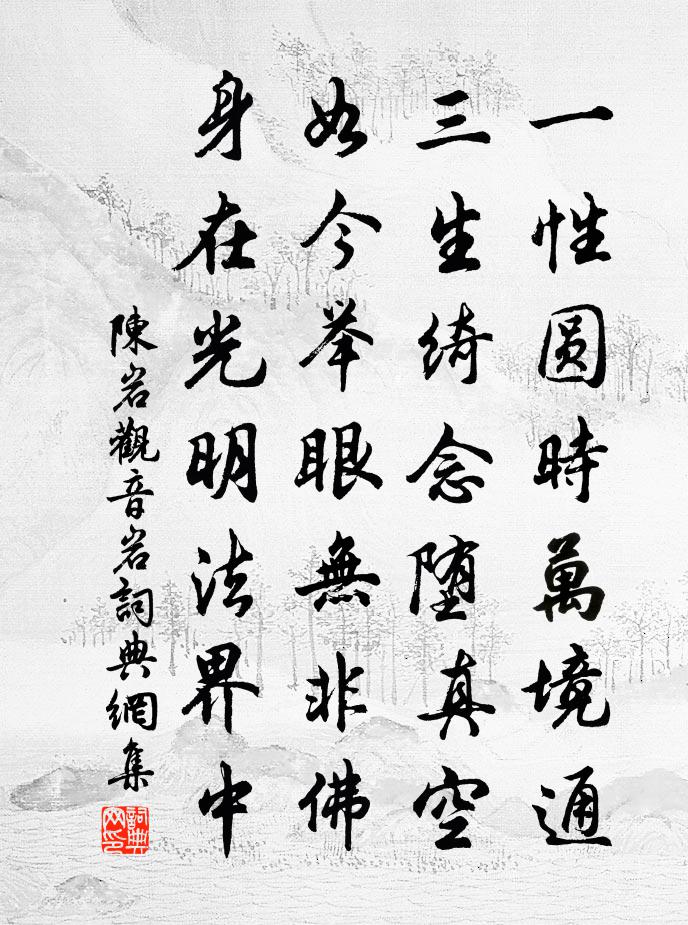 一性圆時萬境通
三生绮念堕真空
如今举眼無非佛
身在光明法界中
陳岩觀音岩詞典網集
詞典網印